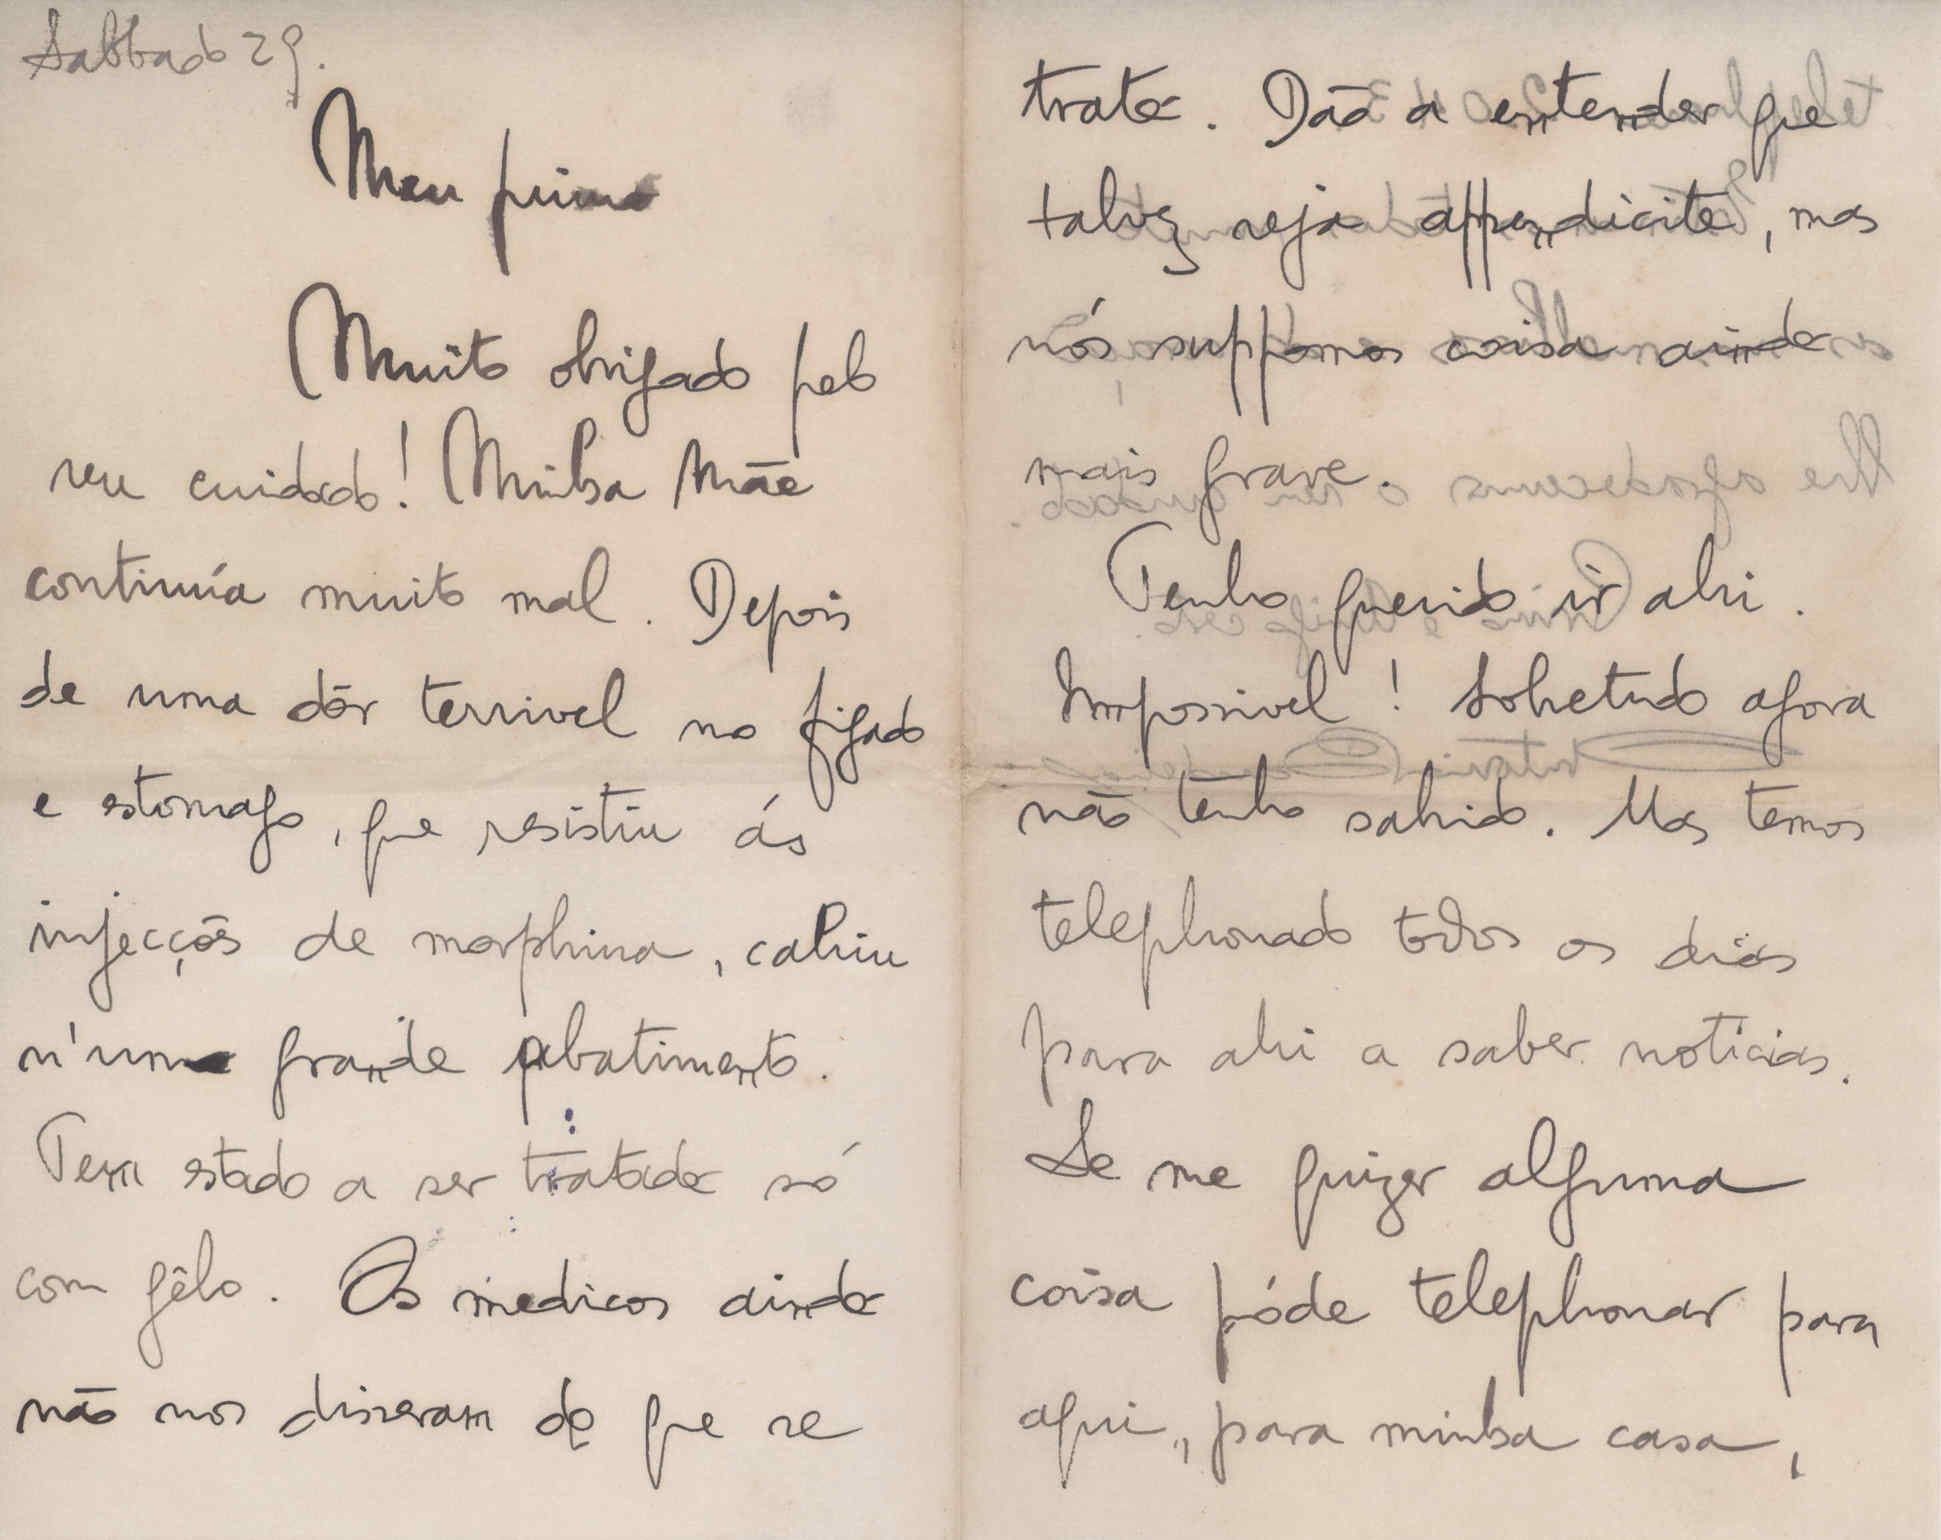 Sabbado 29.
Meu primo
Muito obrigado pelo
seu cuidado! Minha Mãe
continúa muito mal. Depois
de uma dôr terrivel no figado
e estomago, que resistiu ás
injecções de morphina, cahiu
n'uma grande abatimento.
Tem estado a ser tratada só
com gêlo. Os medicos ainda
não nos disseram de que se
trata. Dão a entender que
talvez seja appendicite, mas
nós suppomos coisa ainda
mais grave.
Tenho querido ir ahi.
Impossivel! Sobretudo agora
não tenho sahido. Mas temos
telephonado todos os dias
para ahi a saber noticias.
Se me quizer alguma
coisa póde telephonar para
aqui, para minha casa,